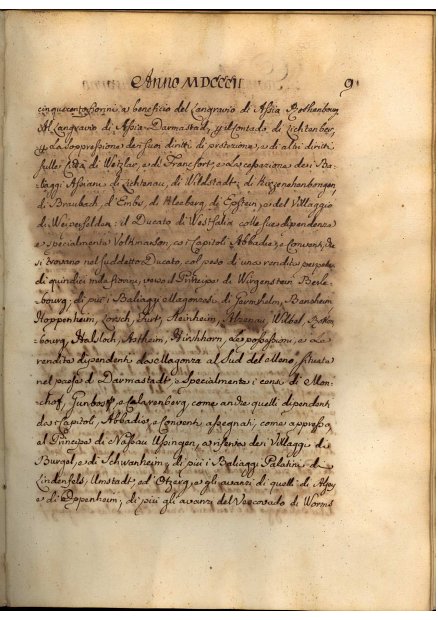 Anno MDCCCII 9
cinquecento fiorini a beneficio del Langravio di Assia Rothenbourg,
Al Langravio di Assia Darmastad, p. il Contado di Lichtenberg,
p. la soppressione dei suoi diritti di protezione, e di altri diritti
sulle Città di Wetzlar, e di Francfort, e la cessazione dei Ba-
liaggi Assiani di Lichtenau, di Wildstadt, di
di Braubach, d'Embs, di Kleeberg, di Epstein, e del Villaggio
di Weiperfelden: il Ducato di Westfalia colle sue dipendenze
e specialmente Volkmarsen, coi Capitoli, Abbadie, e Conventi, che
si trovano nel suddetto Ducato, col peso di una rendita perpetua
di quindici mila fiorini, verso il Principe di Wirgenstein Berle-
bourg, di più i Baliaggi Magonzesi di Gernsheim, Bensheim
Heppenheim, Lorsch, Furt, Steinheim, Alzenau, Wilbel, Rokem-
bourg, Hasloch, Astheim, Hirshhorn, le possessioni, e le
rendite dipendenti da Magonza al Sud del Meno, situate
nel paese di Darmastadt, e specialmente i censi di Mon-
chof, e Clarenberg, come anche quelli dipendenti
dai Capitoli, Abbadie, e Conventi assegnati, come appresso
al Principe di Nassau Usingen, a riserva dei Villaggi di
Burgel, e di Schwanheim; di più i Baliaggi Palatini di
Lindenfels, Umstadt, ed Otzberg, e gli avanzi di quelli di Alzey
e di Oppenheim; di più gli avanzi del Vescovado di Worms